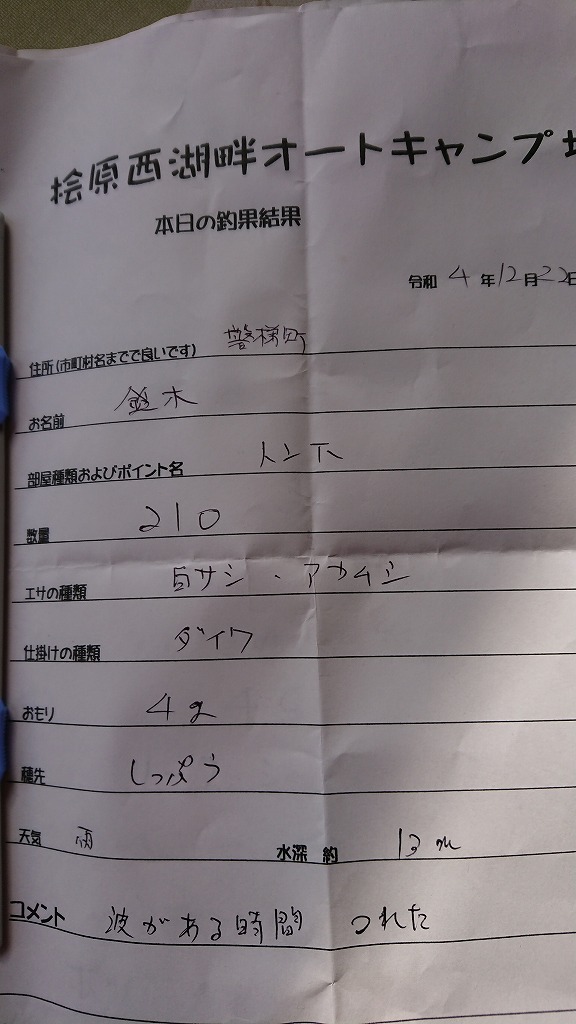 桧原西湖畔オートキャンプ場
本日の釣果結果
令和 4 年 12 月 22 日
住所(市町村名までで良いです) 磐梯町
お名前 鈴木
部屋種類およびポイント名
数量 210
エサの種類 白サシ・アカムシ
仕掛けの種類 ダイワ
おモリ 4g
穂先 しっぽう
天気 雨 水深 約 13m
コメント 波がある時間 つれた